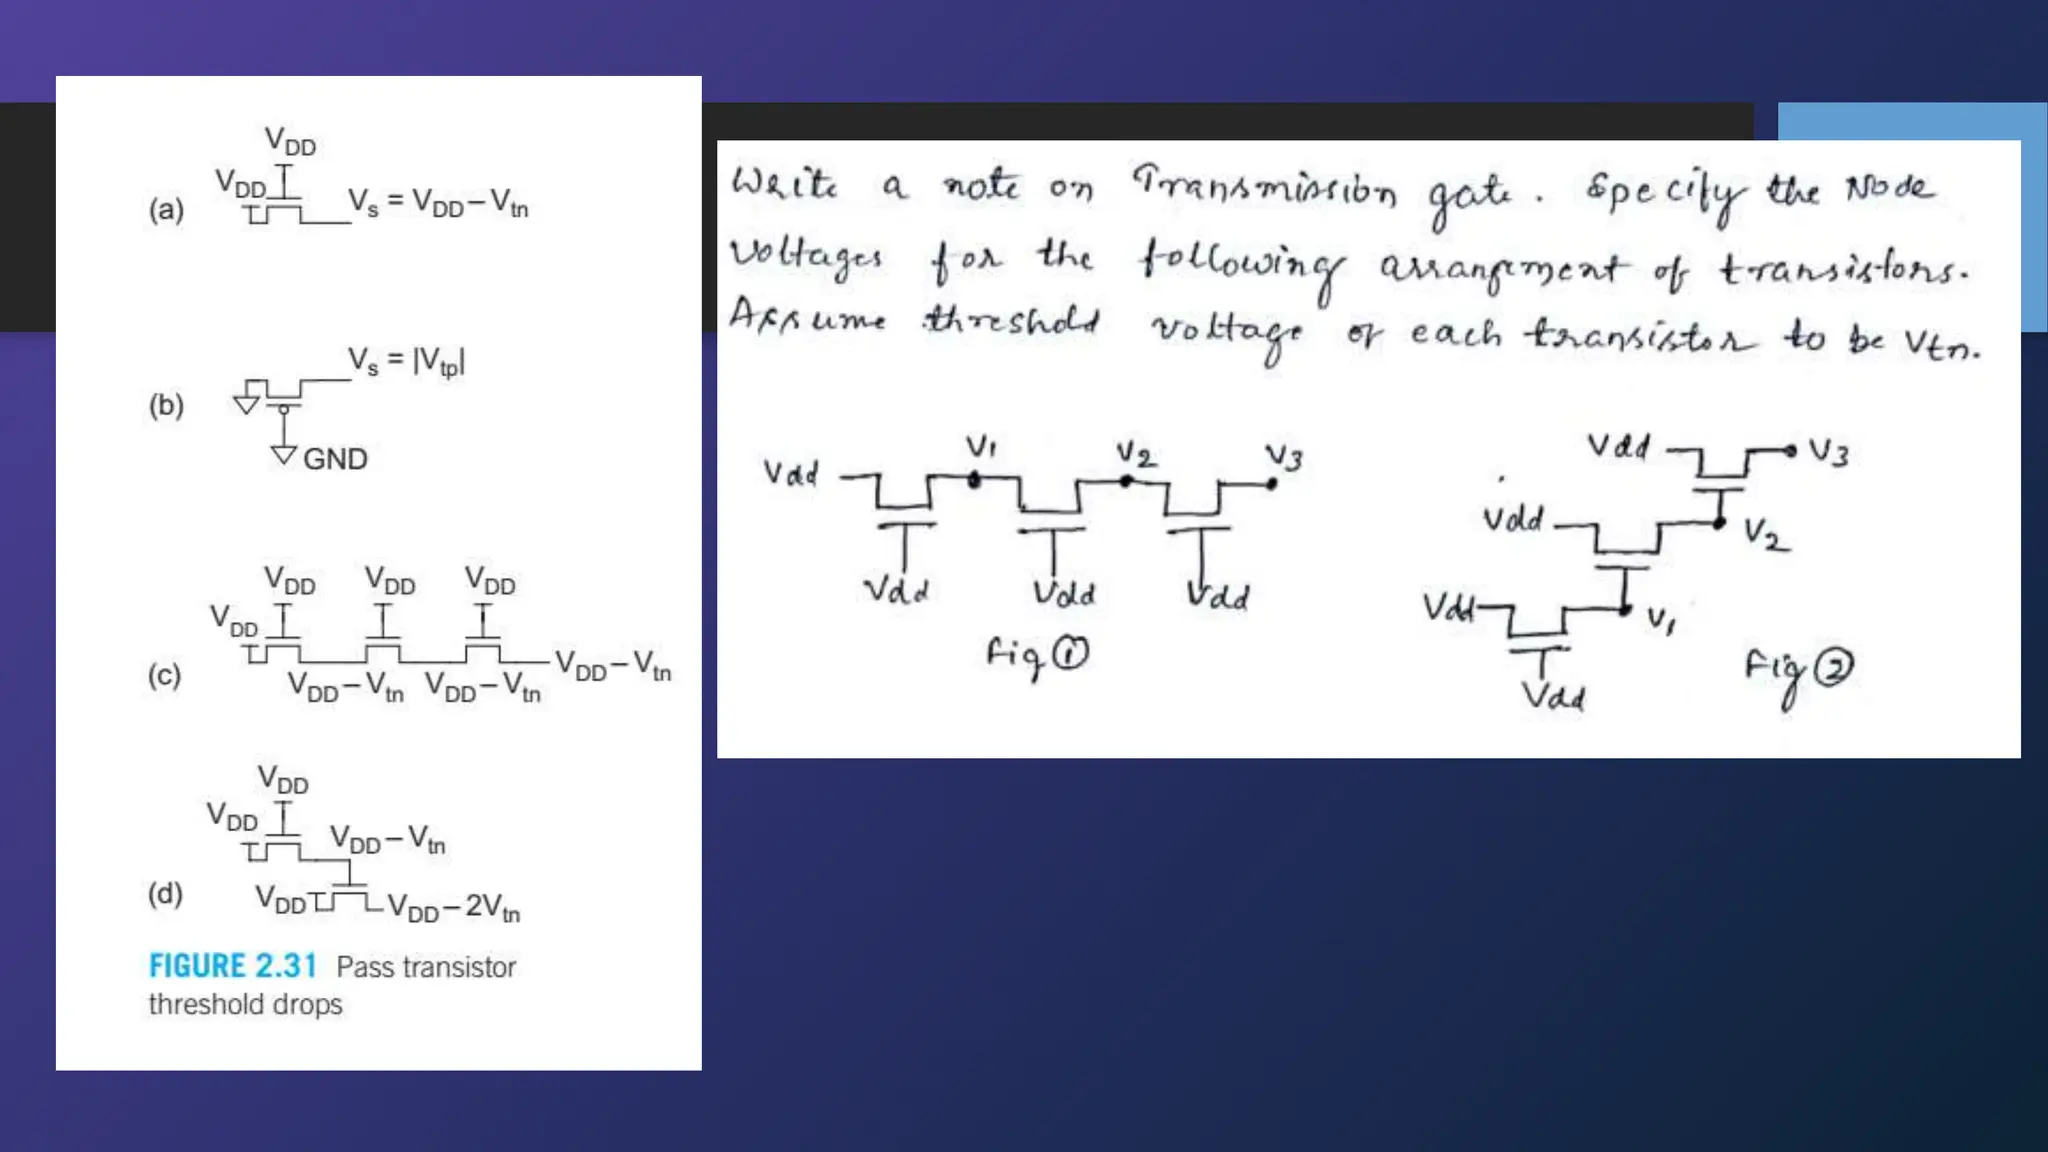 VDD
VDD
(a)
Vs = VDD – Vtn
Vs = |Vtp|
(b)
GND
VDD VDD VDD
VDD
(c)
VDD – Vtn VDD – Vtn VDD – Vtn
VDD
VDD
VDD – Vtn
(d)
VDD VDD – 2Vtn
FIGURE 2.31 Pass transistor
threshold drops
Write a note on Transmission gate. Specify the Node
voltages for the following arrangement of transistors.
Assume threshold voltage of each transistor to be Vtn.
Vdd V1 V2 V3
Vdd Vdd Vdd
Fig ①
Vdd V3
Vdd V2
Vdd V1
Vdd
Fig ②